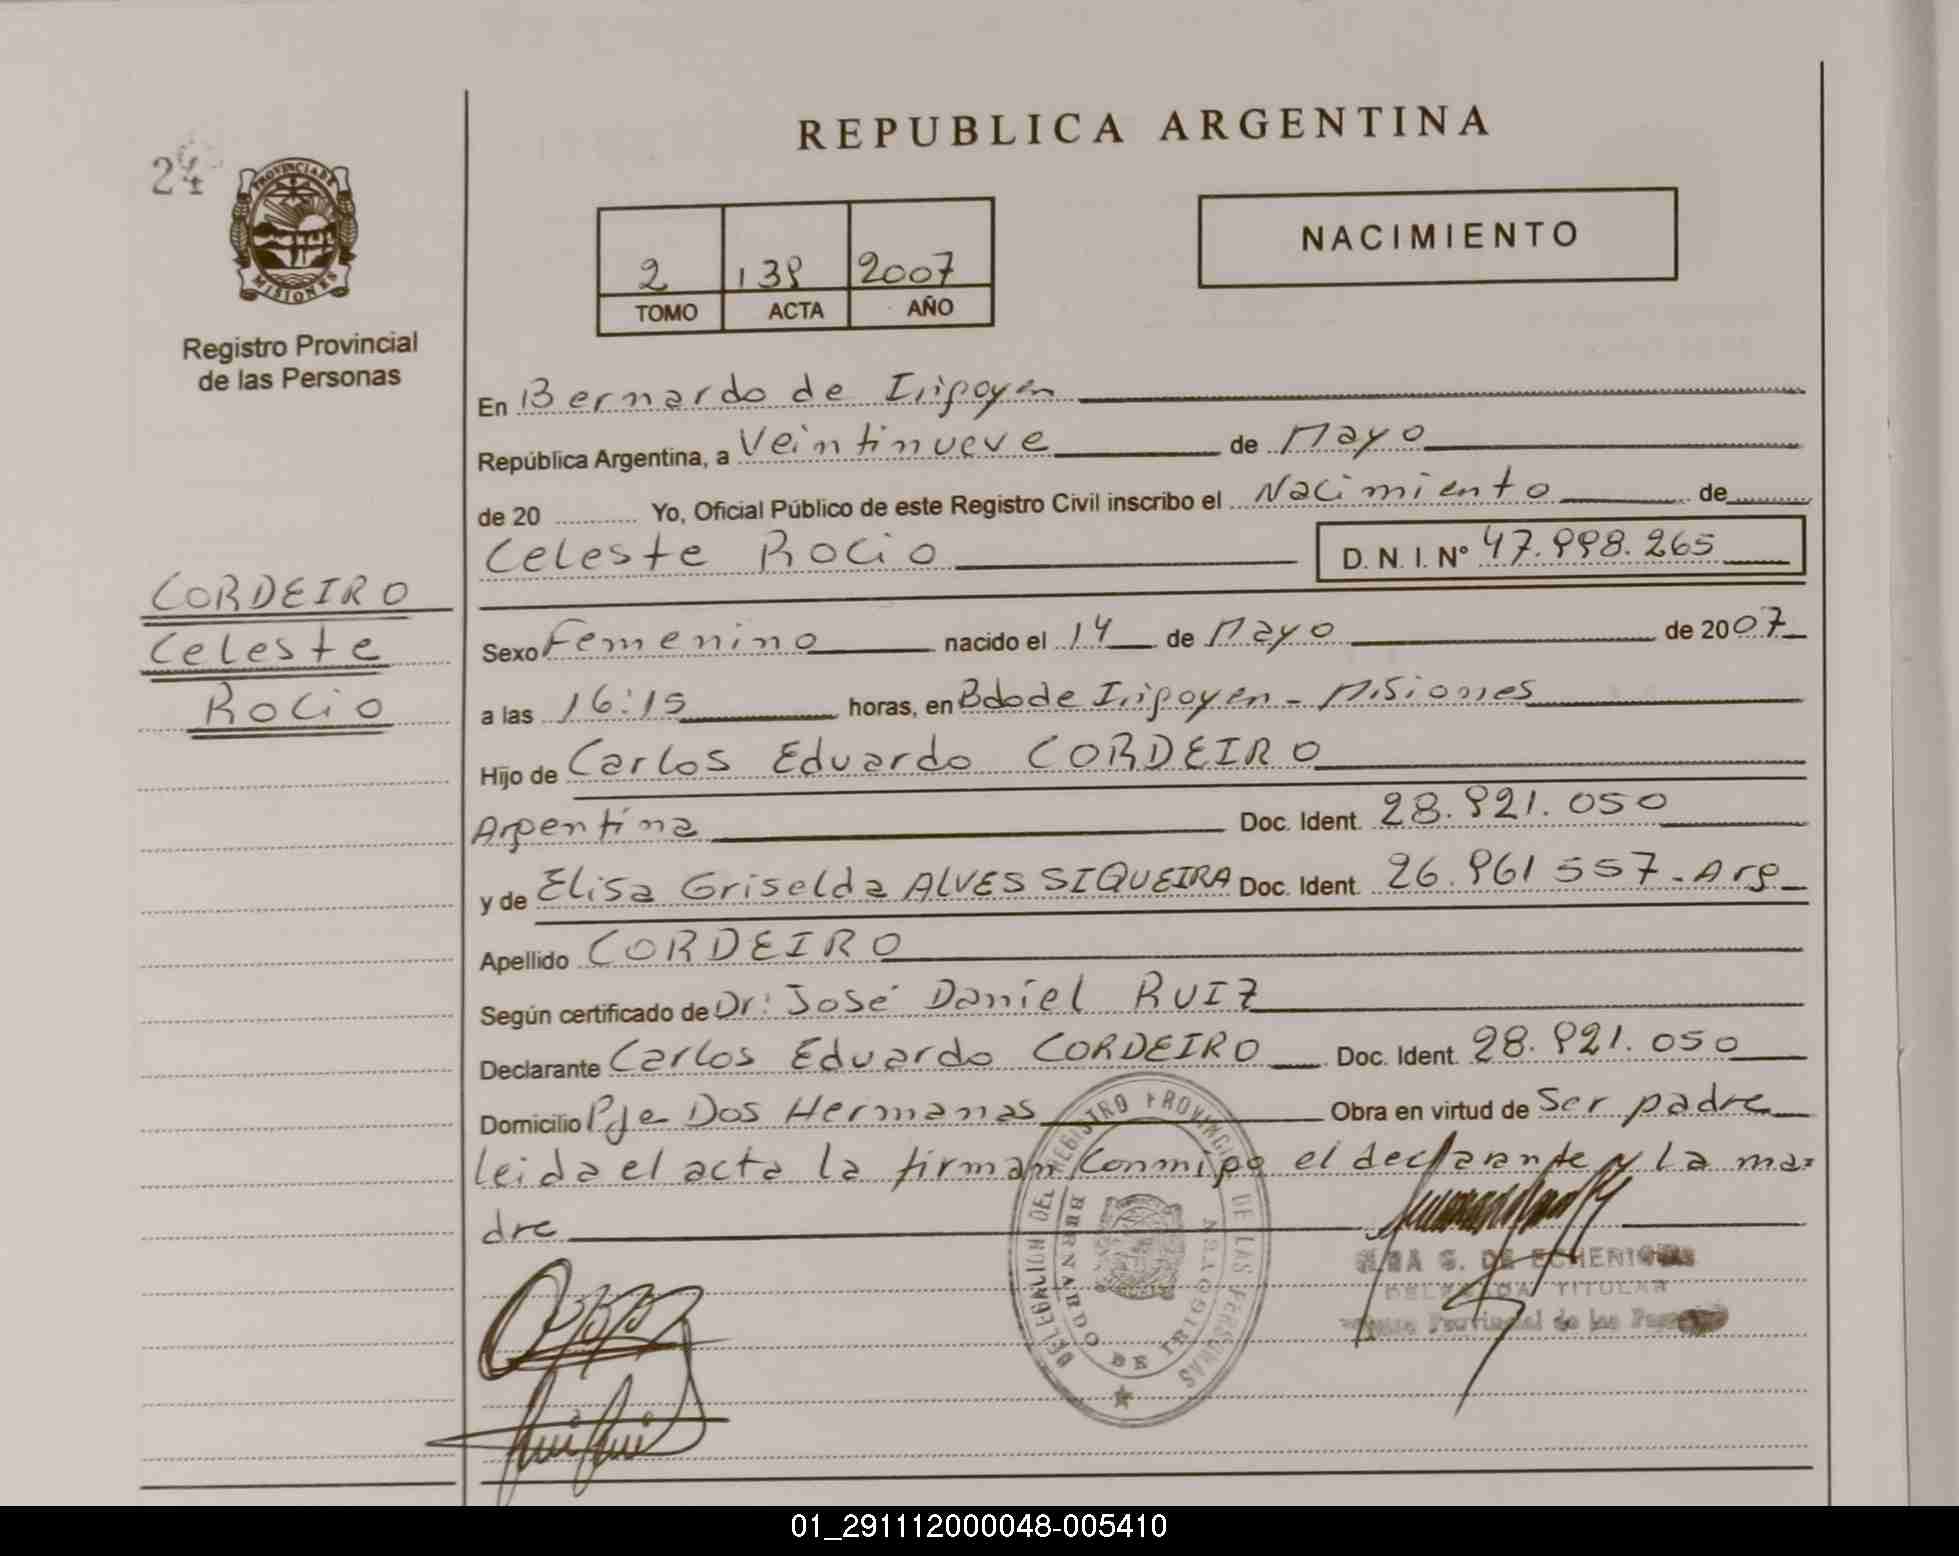 REPUBLICA ARGENTINA
24
PROVINCIA DE MISIONES
Registro Provincial
de las Personas
2 139 2007
TOMO ACTA AÑO
NACIMIENTO
En Bernardo de Irigoyen
República Argentina, a Veintinueve de Mayo
de 20 Yo, Oficial Público de este Registro Civil inscribo el Nacimiento de
Celeste Rocio D. N. I. Nº 47.998.265
CORDEIRO
Celeste
Rocio
Sexo Femenino nacido el 14 de Mayo de 2007
a las 16:15 horas, en Bdo de Irigoyen - Misiones
Hijo de Carlos Eduardo CORDEIRO
Argentina Doc. Ident. 28.921.050
y de Elisa Griselda ALVES SIQUEIRA Doc. Ident. 26.961 557 - Arg
Apellido CORDEIRO
Según certificado de Dr: José Daniel RUIZ
Declarante Carlos Eduardo CORDEIRO Doc. Ident. 28.921.050
Domicilio Pje Dos Hermanas Obra en virtud de Ser padre
leida el acta la firman conmigo el declarante y la ma=
dre
DELEGACION DEL REGISTRO PROVINCIAL DE LAS PERSONAS
BERNARDO DE IRIGOYEN
G. DE
TITULAR
Provincial de las
01_291112000048-005410